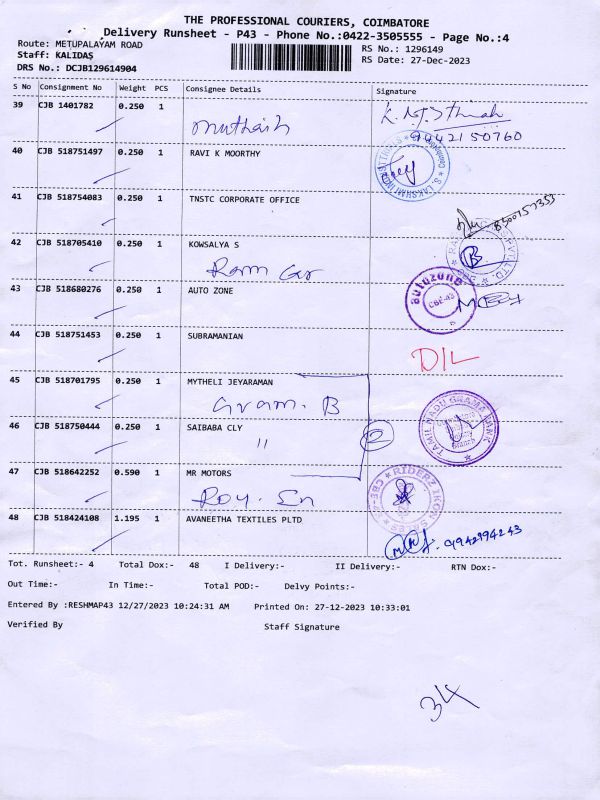 THE PROFESSIONAL COURIERS, COIMBATORE
Delivery Runsheet - P43 - Phone No.:0422-3505555 - Page No.:4
Route: METUPALAYAM ROAD
RS No.: 1296149
Staff: KALIDAS
RS Date: 27-Dec-2023
DRS No.: DCJB129614904
S No Consignment No Weight PCS Consignee Details Signature
39 CJB 1401782 0.250 1
muthaih
9442150760
40 CJB 518751497 0.250 1 RAVI K MOORTHY
41 CJB 518754083 0.250 1 TNSTC CORPORATE OFFICE
42 CJB 518705410 0.250 1 KOWSALYA S
Ram Car
43 CJB 518680276 0.250 1 AUTO ZONE
autozone
44 CJB 518751453 0.250 1 SUBRAMANIAN
D/L
45 CJB 518701795 0.250 1 MYTHELI JEYARAMAN
Gram. B
46 CJB 518750444 0.250 1 SAIBABA CLY
"
2
TAMIL NADU GRAMA BANK
47 CJB 518642252 0.590 1 MR MOTORS
Roy. En
48 CJB 518424108 1.195 1 AVANEETHA TEXTILES PLTD
9942994243
Tot. Runsheet:- 4 Total Dox:- 48 I Delivery:- II Delivery:- RTN Dox:-
Out Time:- In Time:- Total POD:- Delvy Points:-
Entered By :RESHMAP43 12/27/2023 10:24:31 AM Printed On: 27-12-2023 10:33:01
Verified By Staff Signature
34